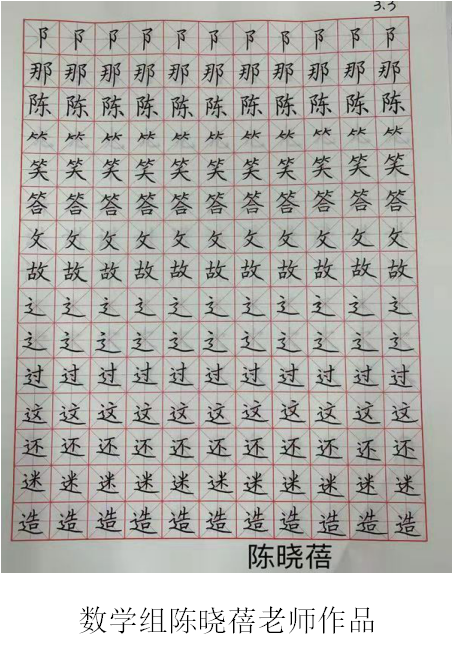 3.3
阝阝阝阝阝阝阝阝阝阝阝
那那那那那那那那那那那
陈陈陈陈陈陈陈陈陈陈陈
⺮⺮⺮⺮⺮⺮⺮⺮⺮⺮⺮
笑笑笑笑笑笑笑笑笑笑笑
答答答答答答答答答答答
攵攵攵攵攵攵攵攵攵攵攵
故故故故故故故故故故故
辶辶辶辶辶辶辶辶辶辶辶
辶辶辶辶辶辶辶辶辶辶辶
过过过过过过过过过过过
这这这这这这这这这这这
还还还还还还还还还还还
迷迷迷迷迷迷迷迷迷迷迷
造造造造造造造造造造造
陈晓蓓
数学组陈晓蓓老师作品